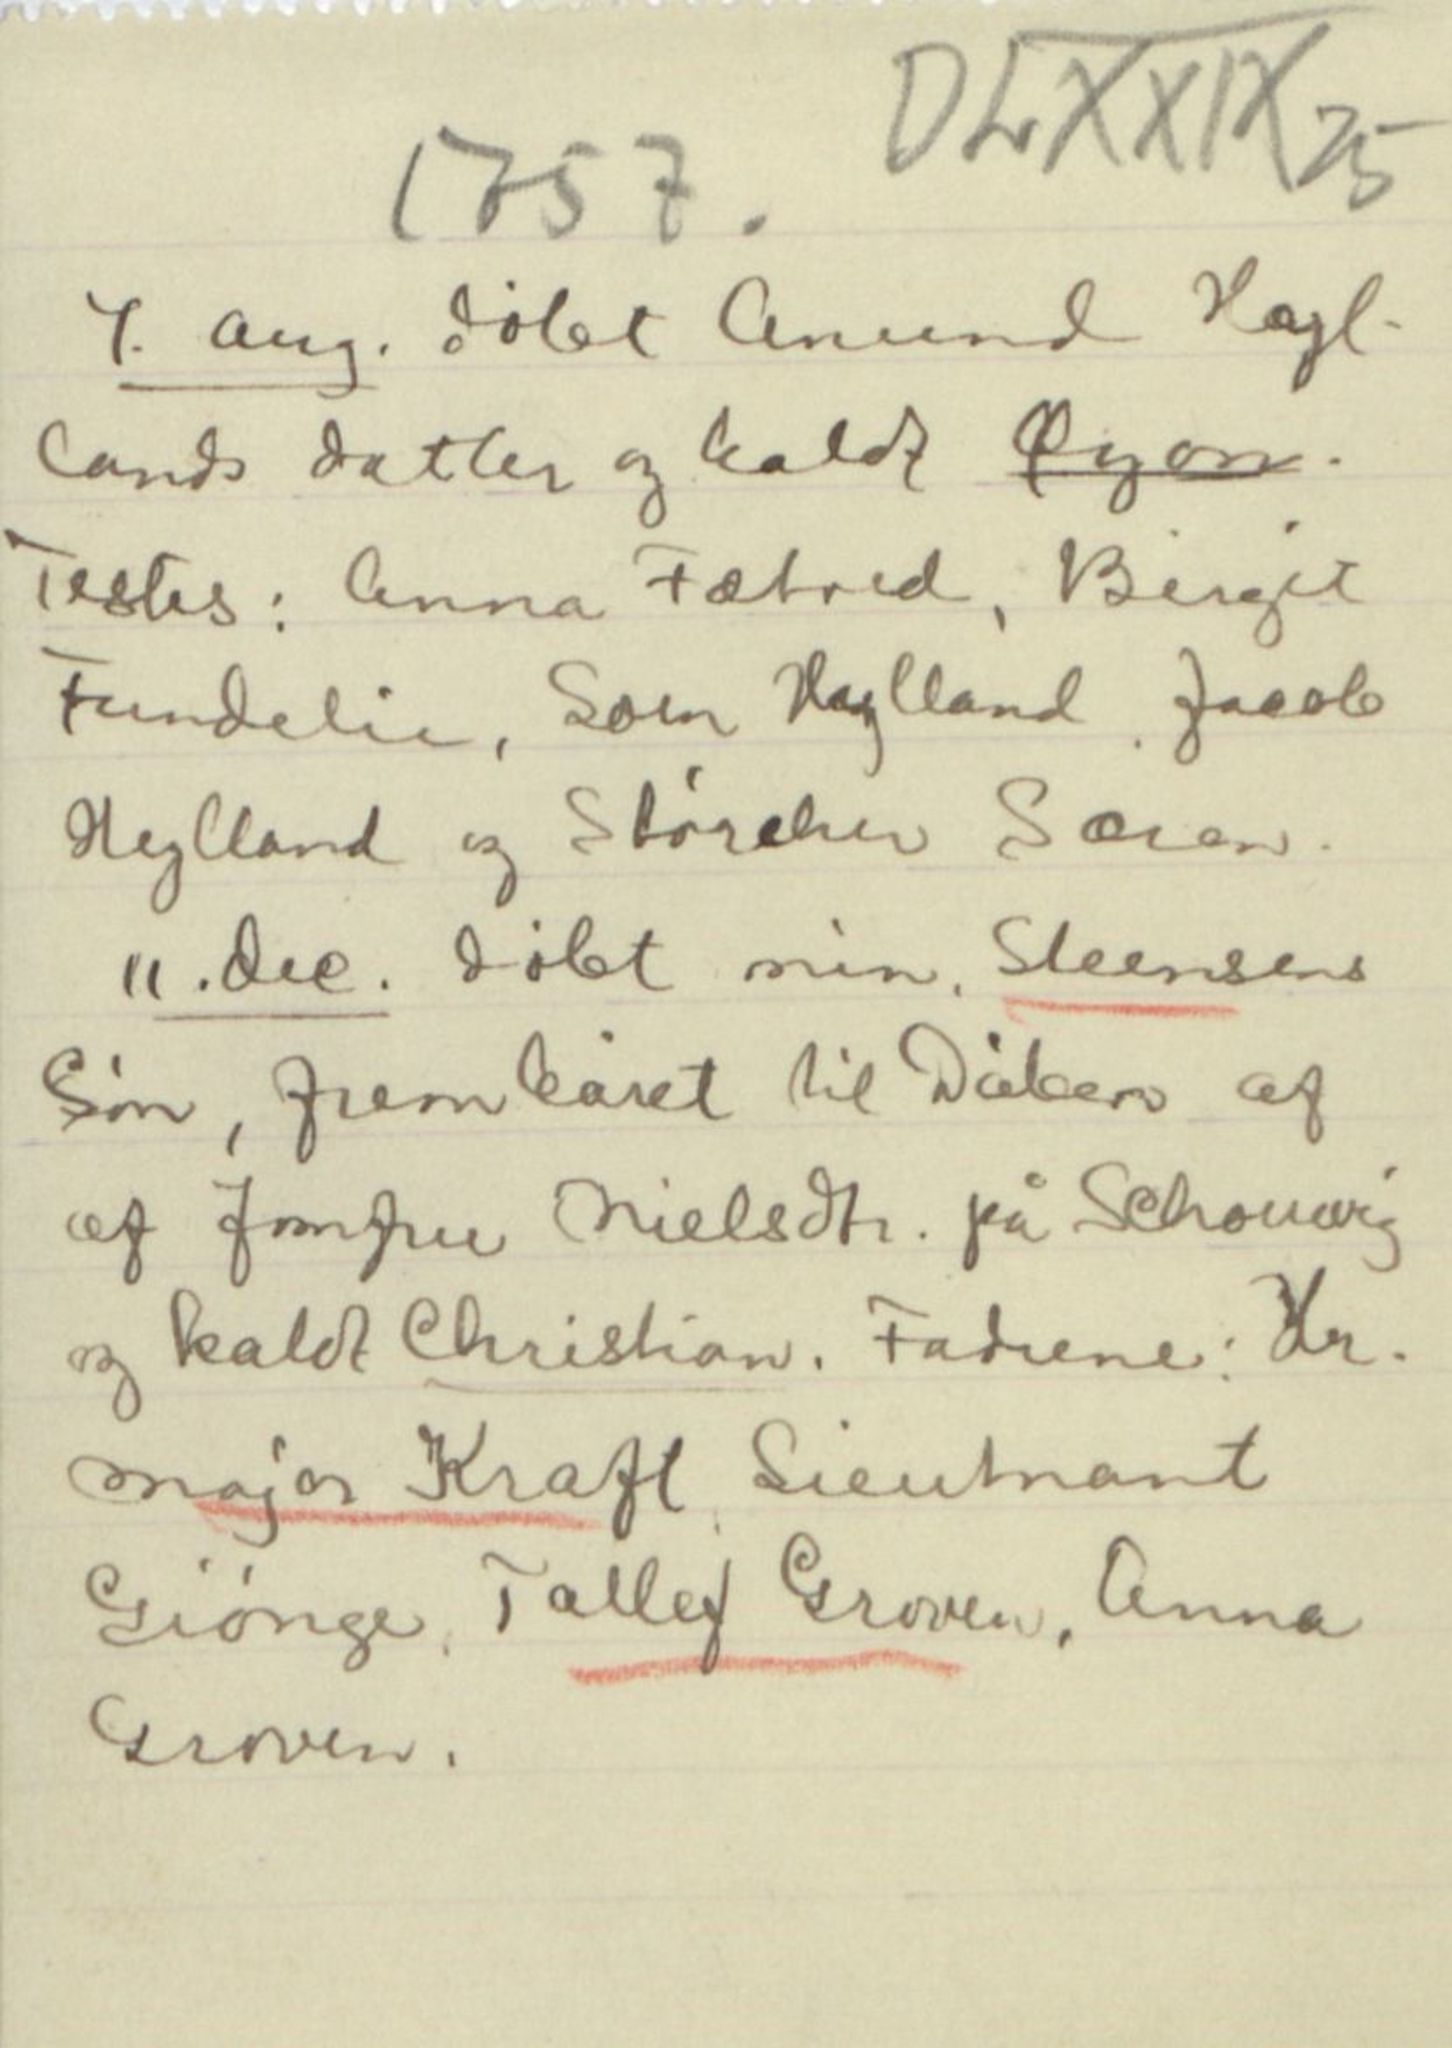 DLXXIX 25
1757.
7. Aug. döbt Amund Hegl-
lands datter og kaldt Øyon.
Testes: Anna Fætved, Birgit
Fundelie, Sven Heglland, Jacob
Heglland og Störcher Søren.
11. Dec. döbt min. Steensens
Sön, frembåret til Dåben af
af Jomfru Nielsdtr. på Schouvig
og kaldt Christian. Fadrene: Hr.
major Kraft, Lieutnant
Giönge, Tallef Groven, Anna
Groven.